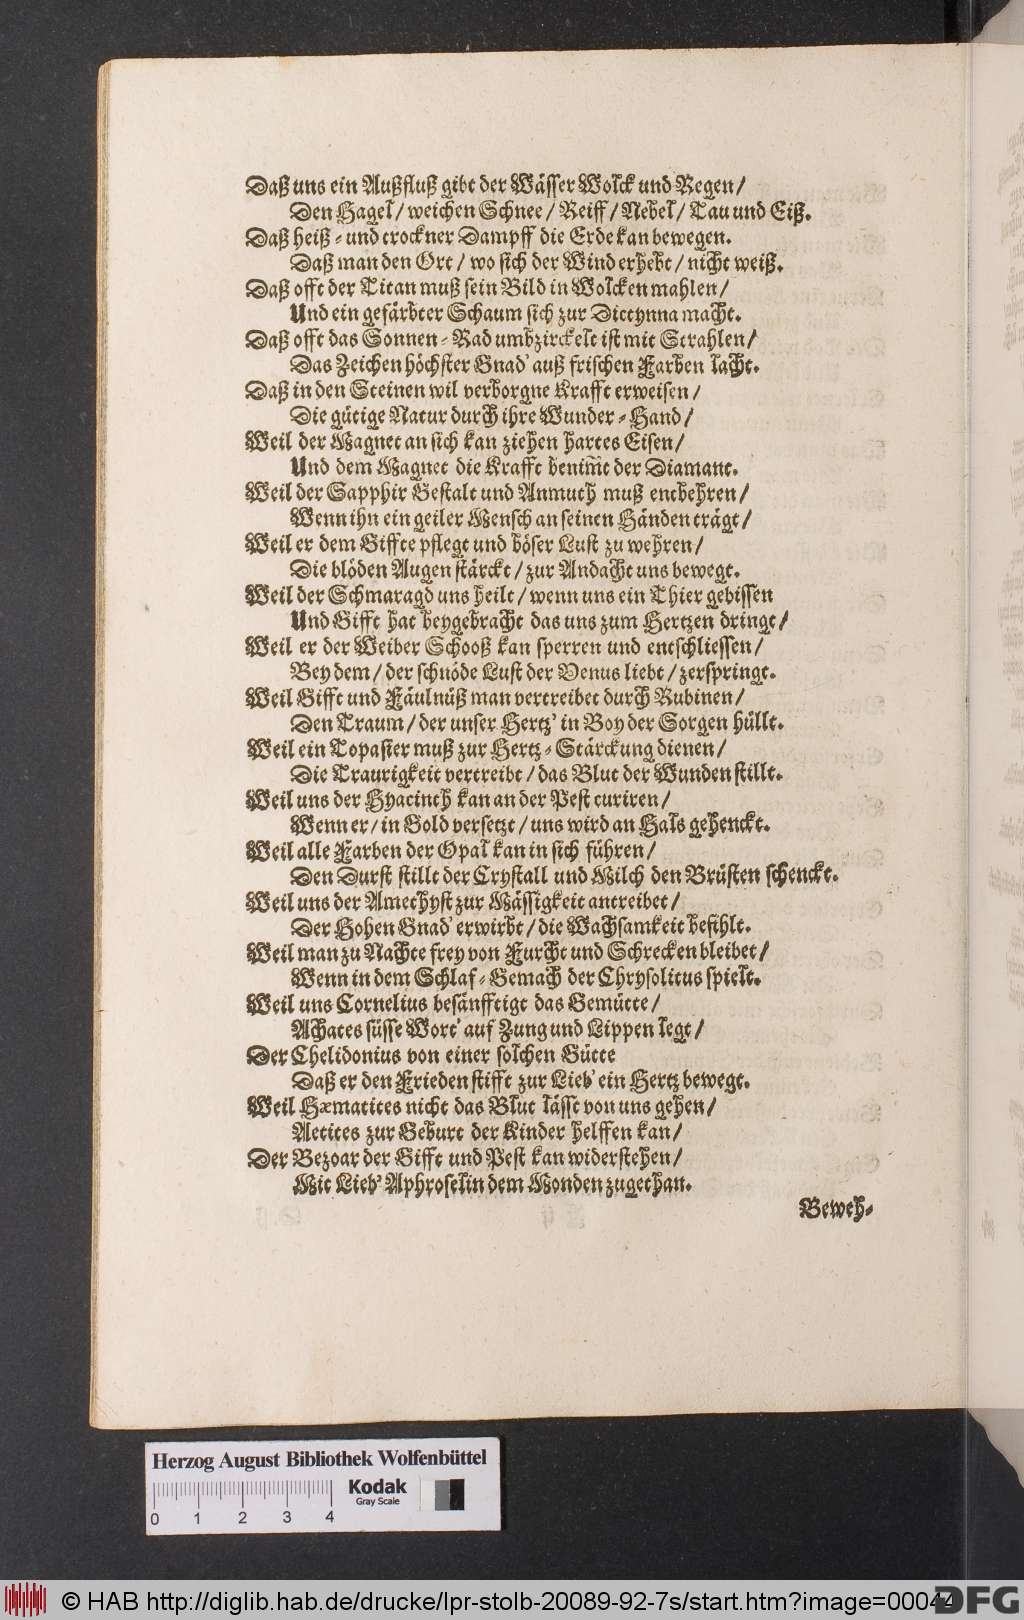 Daß uns ein Außfluß gibt der Wässer Wolck und Regen/
Den Hagel/ weichen Schnee/ Reiff/ Nebel/ Tau und Eiß.
Daß heiß- und trockner Dampff die Erde kan bewegen.
Daß man den Ort/ wo sich der Wind erhebt/ nicht weiß.
Daß offt der Titan muß sein Bild in Wolcken mahlen/
Und ein gefärbter Schaum sich zur Dictynna macht.
Daß offt das Sonnen-Rad umbzirckelt ist mit Strahlen/
Das Zeichen höchster Gnad' auß frischen Farben lacht.
Daß in den Steinen wil verborgne Krafft erweisen/
Die gütige Natur durch ihre Wunder-Hand/
Weil der Magnet an sich kan ziehen hartes Eisen/
Und dem Magnet die Krafft benim̃t der Diamant.
Weil der Sapphir Gestalt und Anmuth muß entbehren/
Wenn ihn ein geiler Mensch an seinen Händen trägt/
Weil er dem Giffte pflegt und böser Lust zu wehren/
Die blöden Augen stärckt/ zur Andacht uns bewegt.
Weil der Schmaragd uns heilt/ wenn uns ein Thier gebissen
Und Gifft hat beygebracht das uns zum Hertzen dringt/
Weil er der Weiber Schooß kan sperren und entschliessen/
Bey dem/ der schnöde Lust der Venus liebt/ zerspringt.
Weil Gifft und Fäulnüß man vertreibet durch Rubinen/
Den Traum/ der unser Hertz' in Boy der Sorgen hüllt.
Weil ein Topasier muß zur Hertz-Stärckung dienen/
Die Traurigkeit vertreibt/ das Blut der Wunden stillt.
Weil uns der Hyacinth kan an der Pest curiren/
Wenn er/ in Gold versetzt/ uns wird an Hals gehenckt.
Weil alle Farben der Opal kan in sich führen/
Den Durst stillt der Crystall und Milch den Brüsten schenckt.
Weil uns der Amethyst zur Mässigkeit antreibet/
Der Hohen Gnad' erwirbt/ die Wachsamkeit befihlt.
Weil man zu Nachte frey von Furcht und Schrecken bleibet/
Wenn in dem Schlaf-Gemach der Chrysolitus spielt.
Weil uns Cornelius besänfftigt das Gemütte/
Achates süsse Wort' auf Zung und Lippen legt/
Der Chelidonius von einer solchen Gütte
Daß er den Frieden stifft zur Lieb' ein Hertz bewegt.
Weil Hæmatites nicht das Blut lässt von uns gehen/
Aetites zur Geburt der Kinder helffen kan/
Der Bezoar der Gifft und Pest kan widerstehen/
Mit Lieb' Aphroselin dem Monden zugethan.
Beweh-
Herzog August Bibliothek Wolfenbüttel
Kodak
Gray Scale
0 1 2 3 4
© HAB http://diglib.hab.de/drucke/lpr-stolb-20089-92-7s/start.htm?image=00044
DFG